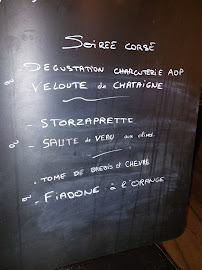 SOIREE CORSE
DEGUSTATION CHARCUTERIE AOP
VELOUTE de CHATAIGNE
- STORZAPRETTE
- SAUTE de VEAU aux olives
- TOME DE BREBIS et CHEVRE
- FIADONE à l'ORANGE